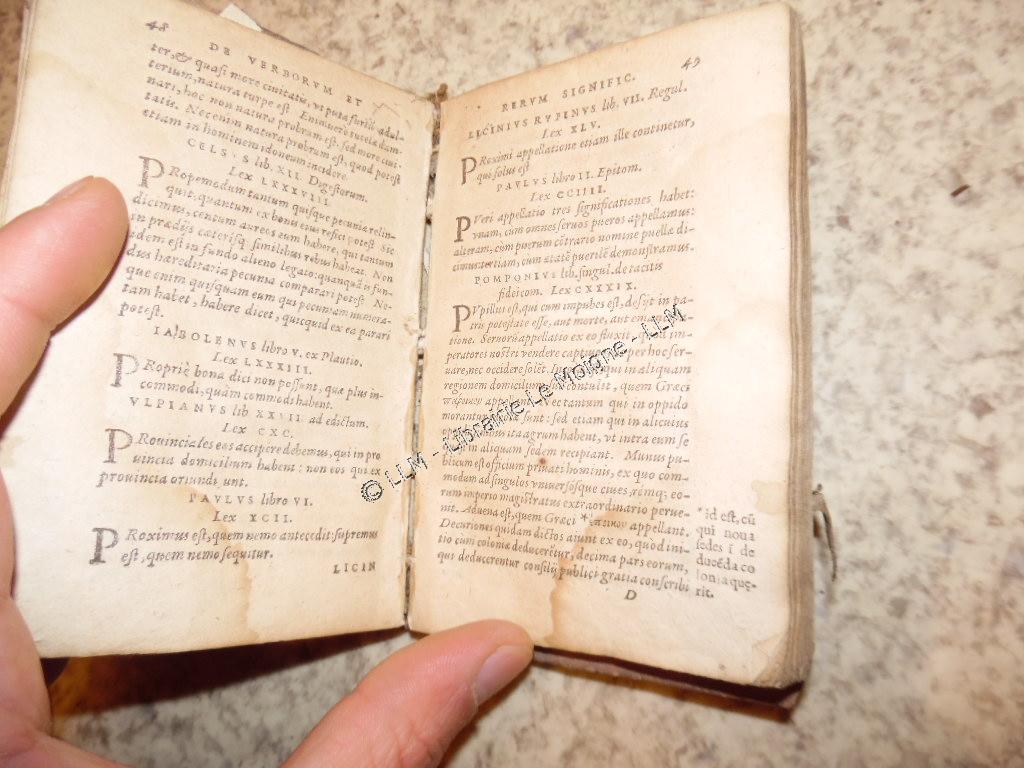 48
DE VERBORVM ET
ter, & quasi more ciuitatis, vt puta furtū adul-
terium, natura turpe est Enimuerò tutelæ dam-
nari, hoc non natura probrum est, sed more ciui-
tatis. Nec enim natura probrum est, quod potest
etiam in hominem idoneum incidere.
CELSVS lib. XII. Digestorum.
Lex LXXXVIII.
PRopemodum tantum quisque pecuniæ relin-
quit, quantum ex bonis eius refici potest Sic
dicimus, centum aureos eum habere, qui tantum
in prædijs cæterisq; similibus rebus habeat. Non
idem est in fundo alieno legato: quanquā is fun-
dus hereditaria pecunia comparari potest Ne-
que enim quisquam eum qui pecuniam numera-
tam habet, habere dicet, quicquid ex ea parari
potest.
IABOLENVS libro V. ex Plautio.
Lex LXXXIII.
PRopriè bona dici non possunt, quæ plus in-
commodi, quàm commodi habent.
VLPIANVS lib XXVII. ad edictum.
Lex CXC.
PRouinciales eos accipere debemus, qui in pro
uincia domicilium habent: non eos qui ex
prouincia oriundi sunt.
PAVLVS libro VI.
Lex XCII.
PRoximus est, quem nemo antecedit: supremus
est, quem nemo sequitur.
LICIN
49
RERVM SIGNIFIC.
LICINIVS RVFINVS lib. VII. Regul.
Lex XLV.
PRoximi appellatione etiam ille continetur,
qui solus est
PAVLVS libro II. Epitom.
Lex CCIIII.
PVeri appellatio tres significationes habet:
vnam, cum omnes seruos pueros appellamus:
alteram, cum puerum cōtrario nomine puellæ di-
cimus: tertiam, cum ætatē puerilē demonstramus.
POMPONIVS lib. singul. de tacitis
fideicom. Lex CXXXIX.
PVpillus est, qui cum impubes est, desijt in pa-
tris potestate esse, aut morte, aut emancipa-
tione. Seruorū appellatio ex eo fluxit, quòd im-
peratores nostri vendere captiuos, ac per hoc ser-
uare, nec occidere solēt. qui in aliquam
regionem domicilium contulit, quem Græci
appellant. Nec tantum qui in oppido
morantur sunt: sed etiam qui in alicuius
oppidi ita agrum habent, vt intra eum se
in aliquam sedem recipiant. Munus pu-
blicum est officium priuati hominis, ex quo com-
modum ad singulos vniuersosque ciues, rémq; eo-
rum imperio magistratus extraordinario perue-
nit. Aduena est, quem Græci *ἔποικον appellant.
Decuriones quidam dictos aiunt ex eo, quòd ini-
tio cum coloniæ deducerētur, decima pars eorum,
qui deducerentur consilij publici gratia conscribi
D
*id est, cū
qui noua
sedes ī de
ducēda co
lonia quę-
rit.
© LLM - Librairie Le Moigne - LLM